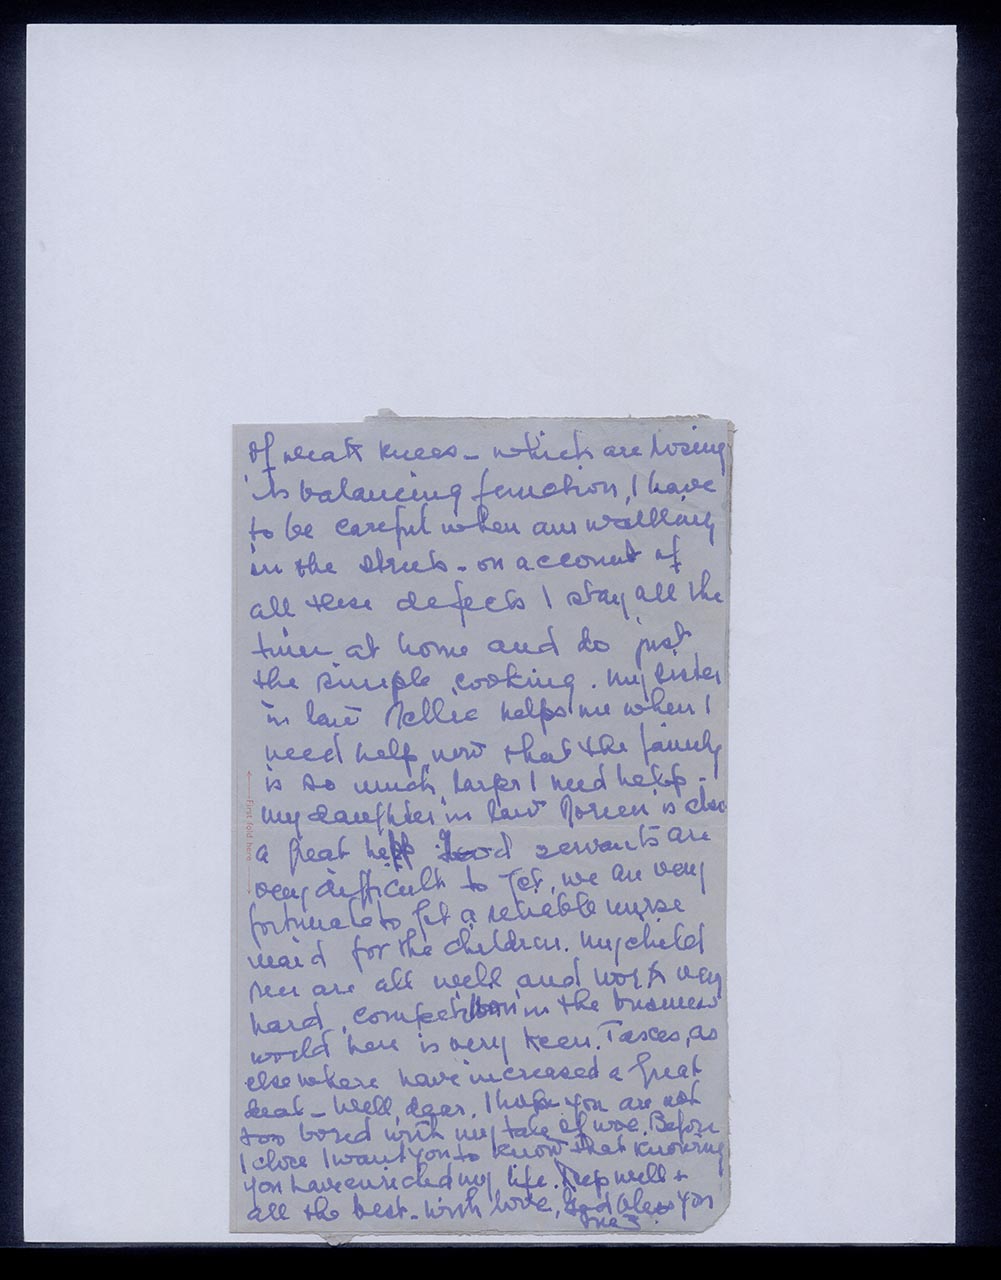 of weak knees - which are losing
its balancing function, I have
to be careful when am walking
in the streets - on account of
all these defects I stay all the
time at home and do just
the simple cooking. My sister
in law Nellie helps me when I
need help, now that the family
is so much larger I need help -
my daughter in law Doreen is also
a great help. Good servants are
very difficult to get, we are very
fortunate to get a reliable nurse
maid for the children. My child
ren are all well and work very
hard, competition in the business
world here is very keen. Taxes, as
elsewhere have increased a great
deal - Well, dear, I hope you are not
too bored with my tale of woe. Before
I close I want you to know that knowing
you have enriched my life. Keep well +
all the best - with love, God bless you
Inez.
← First fold here →